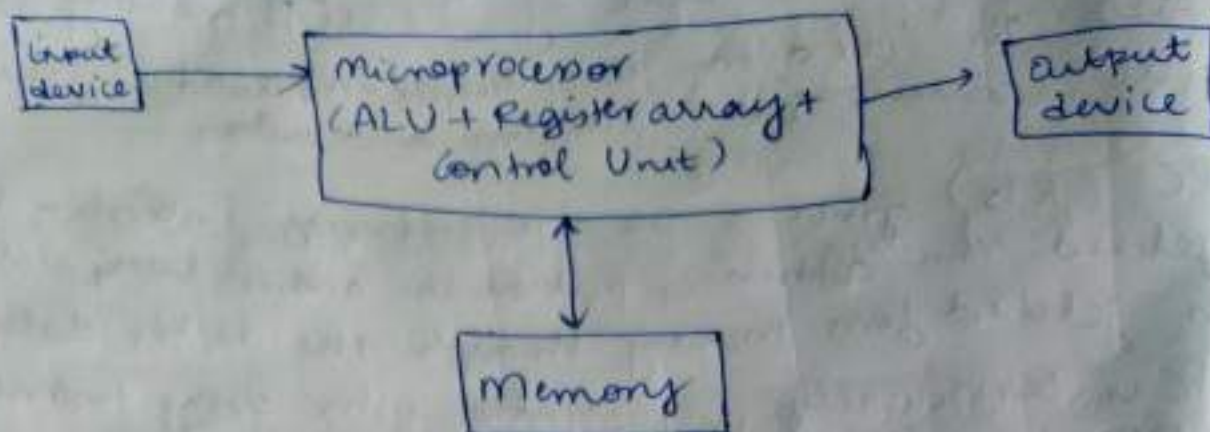 input
device
Microprocessor
(ALU + Register array +
Control Unit)
output
device
Memory